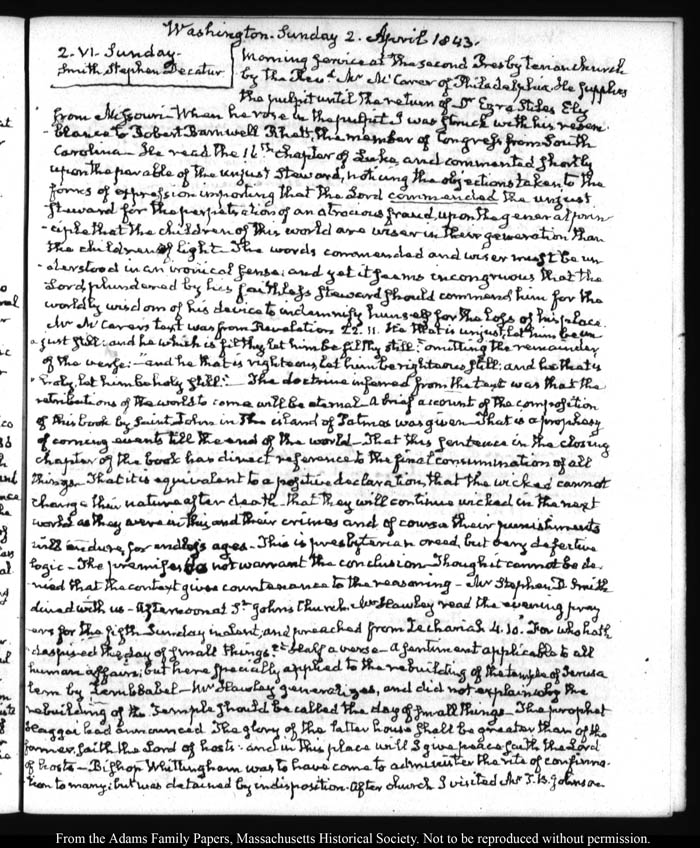 Washington. Sunday 2. April 1843.
2. VI. Sunday.
Smith Stephen Decatur
Morning service at the second Presbyterian church
by the Revd. Mr McCarer of Philadelphia. He supplies
the pulpit until the return of Dr Ezra Stiles Ely
from Missouri. When he rose in the pulpit I was struck with his resem-
-blance to Robert Barnwell Rhett, the member of Congress from South
Carolina— He read the 16th chapter of Luke, and commented shortly
upon the parable of the unjust Steward, noticing the objections taken to the
forms of expression importing that the Lord commended the unjust
steward for the perpetration of an atrocious fraud, upon the general prin-
-ciple that the children of this world are wiser in their generation than
the children of light— The words commended and wiser must be un
-derstood in an ironical sense: and yet it seems incongruous that the
Lord, plundered by his faithless steward should commend him for the
worldly wisdom of his device to indemnify himself for the loss of his place.
Mr McCarer's text was from Revelation 22. 11. He that is unjust, let him be un
-just still: and he which is filthy let him be filthy still: omitting the remainder
of the verse:— "and he that is righteous, let him be righteous still: and he that is
"holy, let him be holy still." The doctrine inferred from the text was that the
retributions of the world to come will be eternal— A brief account of the composition
of this book by Saint Johns in the island of Patmos was given— That is a prophesy
of coming events till the end of the world— That this sentence in the closing
chapter of the book has direct reference to the final consummation of all
things— That it is equivalent to a positive declaration, that the wicked cannot
change their nature after death— that they will continue wicked in the next
world as they were in this, and their crimes and of course their punishments
will endure for endless ages— This is presbyterian creed, but very defective
logic— The premises do not warrant the conclusion— Though it cannot be de-
nied that the context gives countenance to the reasoning— Mr Stephen D. Smith
dined with us— Afternoon at St. Johns Church. Mr Hawley read the evening pray
ers for the fifth Sunday in Lent, and preached from Zechariah 4. 10. "For who hath
"despised the day of small things." Half a verse— A sentiment applicable to all
human affairs; but here specially applied to the rebuilding of the temple of Jerusa
lem by Zerubbabel— Mr Hawley generalizes, and did not explain why the
rebuilding of the Temple should be called the day of small things— The prophet
Haggai had announced The glory of the latter house shall be greater than of the
former, saith the Lord of hosts: and in this place will I give peace saith the Lord
of hosts— Bishop Whittingham was to have come to administer the rite of confirma-
tion to many; but was detained by indisposition. After church I visited Mr J. B. Johnson
From the Adams Family Papers, Massachusetts Historical Society. Not to be reproduced without permission.